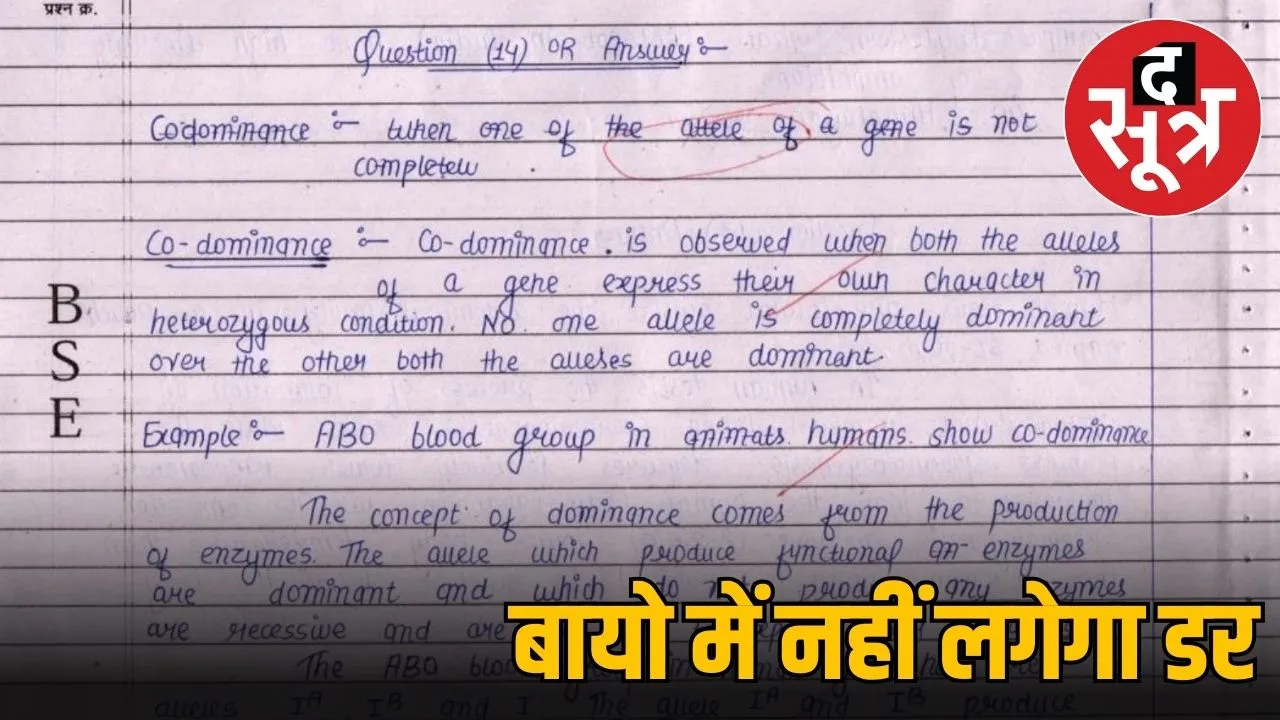 प्रश्न क्र.
द
सूत्र
Question (14) OR Answer :-
Codominance :- when one of the allele of a gene is not
completew .
Co-dominance :- Co-dominance is observed when both the alleles
of a gene express their own character in
heterozygous condition. No one allele is completely dominant
over the other both the alleses are dominant.
Example :- ABO blood group in animals humans show co-dominance
The concept of dominance comes from the production
of enzymes. The allele which produce functional an enzymes
are dominant and which do not produ any enzymes
are recessive and are
The ABO bloo
alleles I^A I^B and I The allele I^A and I^B produce
B
S
E
बायो में नहीं लगेगा डर